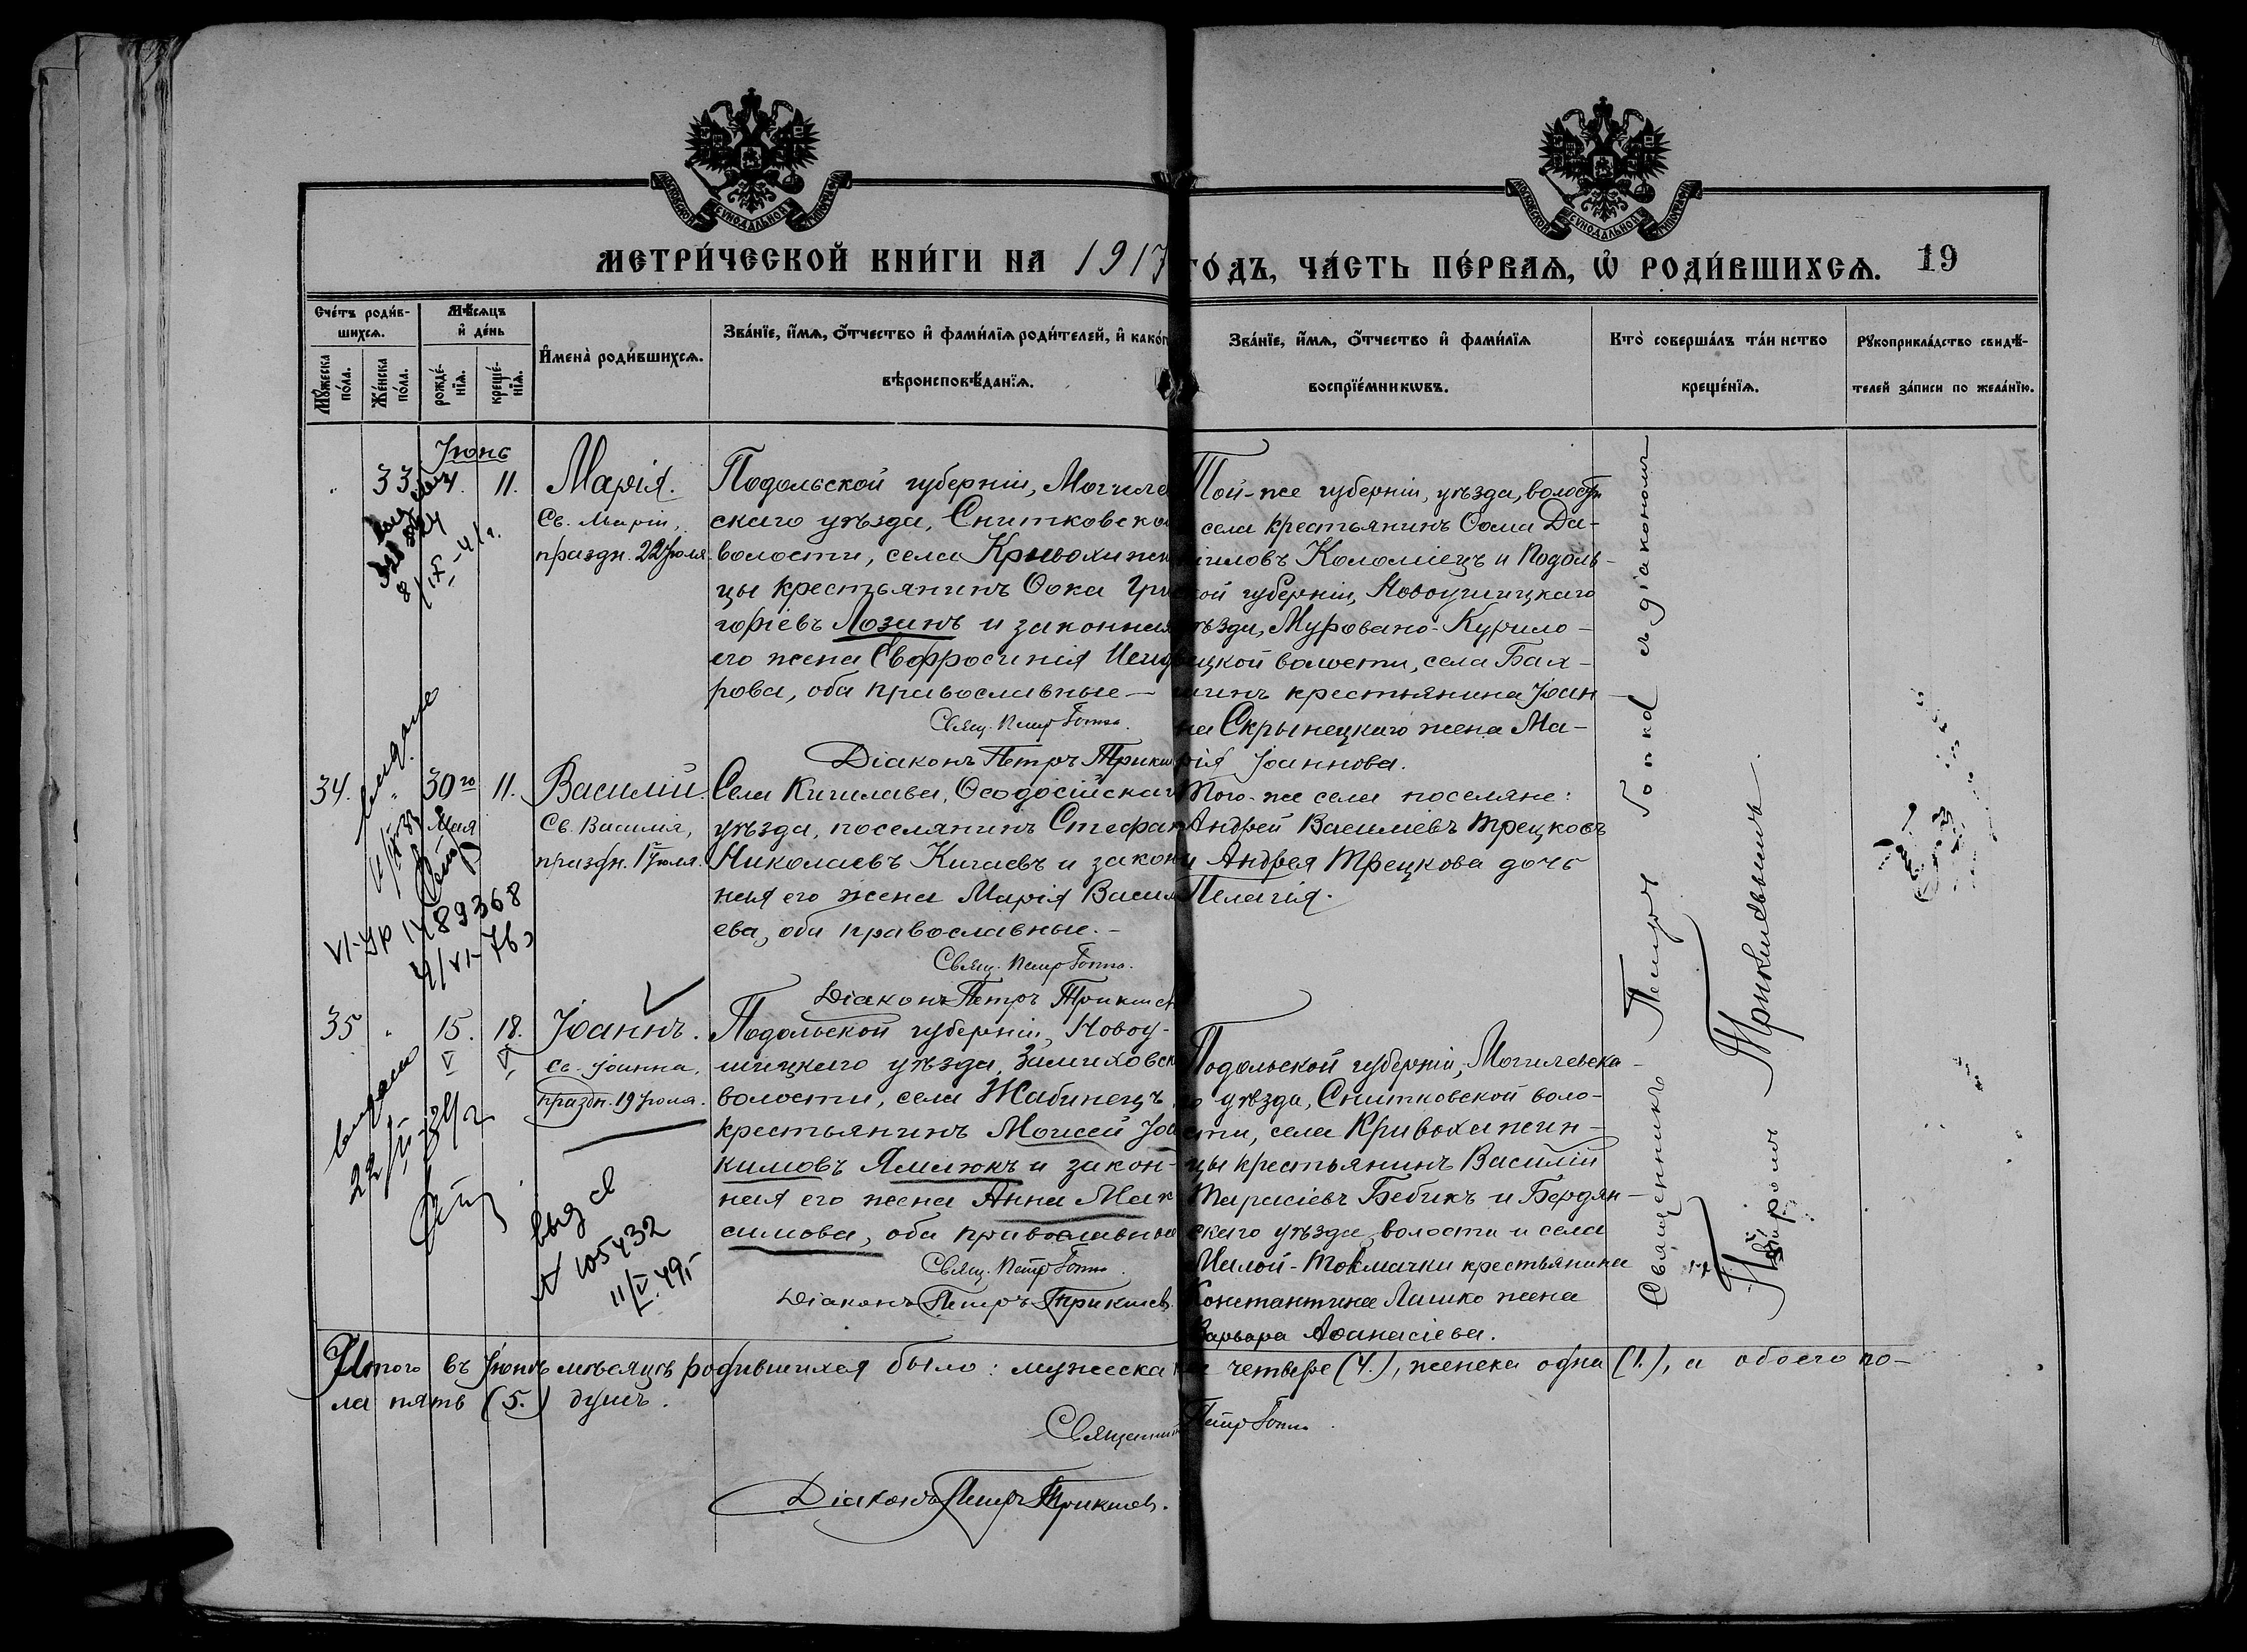 МЕТРИЧЕСКОЙ КНИГИ НА 1917 ГОДЪ, ЧАСТЬ ПЕРВАЯ, Ѡ РОДИВШИХСЯ. 19
Счетъ родившихся.
Мужеска пола.
Женска пола.
Мѣсяцъ и день
рожденїя.
крещенїя.
Имена родившихся.
Званїе, имя, отчество и фамилїя родителей, и како
вѣроисповѣданїя.
Званїе, имя, отчество и фамилїя
воспрїемниковъ.
Кто совершалъ таинство
крещенїя.
Рукоприкладство свидѣ-
телей записи по желанїю.
Іюнь
33 4. 11.
Марія.
Св. Маріи,
праздн. 22 Іюля.
Подольской губерніи, Могиле
скаго уѣзда, Снитковско
волости, села Кривохижин
цы крестьянинъ Ѳока Гри
горіевъ Лозинъ и законная
его жена Евфросинія Исид
рова, оба православные —
Свящ. Петръ Гопко.
Діаконъ Петръ Трикш
Той-же губерніи, уѣзда, волости
села крестьянинъ Ѳома Да-
ніиловъ Коломіецъ и Подоль-
ской губерніи, Новоушицкаго
уѣзда, Муровано-Курило-
вецкой волости, села Бах-
крестьянина Іоан
на Скрынецкаго жена Ма-
рія Іоаннова.
8/IX-41г.
34. " 30го Мая 11.
Василій.
Св. Василія,
праздн. 1го Іюля.
Села Кигилава, Ѳеодосійскаг
уѣзда, поселянинъ Стефан
Николаевъ Кичаевъ и закон
ная его жена Марія Васил
ева, оба православные. —
Свящ. Петръ Гопко.
Діаконъ Петръ Трикшев
Того-же села поселяне:
Андрей Василіевъ Трецковъ
и Андрея Трецкова дочь
Пелагія.
VI-УР 1489368
4/VI-76
35 " 15. V 18. VI
Іоаннъ.
Св. Іоанна,
праздн. 19 Іюля.
Подольской губерніи, Новоу-
шицкаго уѣзда, Замиховск
волости, села Жабинецъ
крестьянинъ Моисей Іоа
кимовъ Ямлюкъ и закон-
ная его жена Анна Мак
симова, оба православные
Свящ. Петръ Гопко.
Діаконъ Петръ Трикшев.
Подольской губерніи, Могилевска-
го уѣзда, Снитковской воло-
сти, села Кривохижин-
цы крестьянинъ Василій
Тарасіевъ Бебикъ и Бердян-
скаго уѣзда, волости и села
Малой-Токмачки крестьянина
Константина Ляшко жена
Варвара Аѳанасіева.
выдано
выд св
№ 105432
11/V-49г
Священникъ Петръ Гопко съ діакономъ
Петромъ Трикишевымъ.
Итого въ Іюнѣ мѣсяцѣ родившихся было: мужеска четвере (4.), женска одна (1.), а обоего по-
ла пять (5.) душъ.
Священник Петръ Гопко.
Діаконъ Петръ Трикшев.